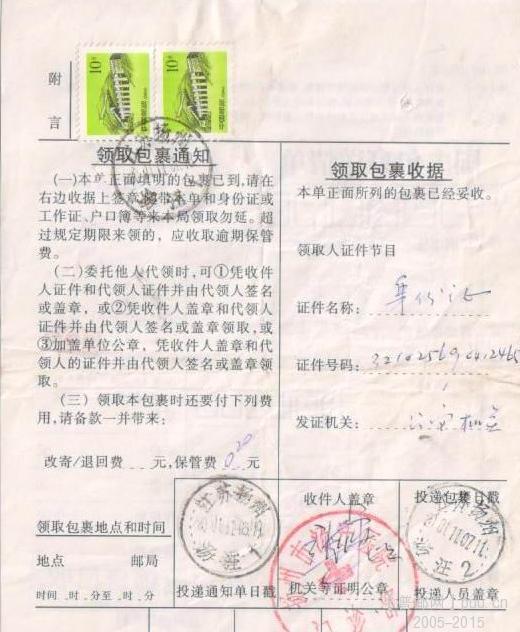 附言
10分
10分
领取包裹通知
(一)本单正面填明的包裹已到,请在
右边收据上签章,携带本单和身份证或
工作证、户口簿等来本局领取勿延。超
过规定期限来领的,应收取逾期保管
费。
(二)委托他人代领时,可①凭收件
人证件和代领人证件并由代领人签名
或盖章,或②凭收件人盖章和代领人
证件并由代领人签名或盖章领取,或
③加盖单位公章,凭收件人盖章和代
领人的证件并由代领人签名或盖章领
取。
(三)领取本包裹时还要付下列费
用,请备款一并带来:
改寄/退回费 元,保管费 元
领取包裹收据
本单正面所列的包裹已经妥收。
领取人证件节目
证件名称:
证件号码:
发证机关:
领取包裹地点和时间
地点 邮局
时间 时 分至 时 分
江苏扬州
投递通知单日戳
收件人盖章
机关等证明公章
投递包裹日戳
江苏扬州
投递人员盖章
2005-2015